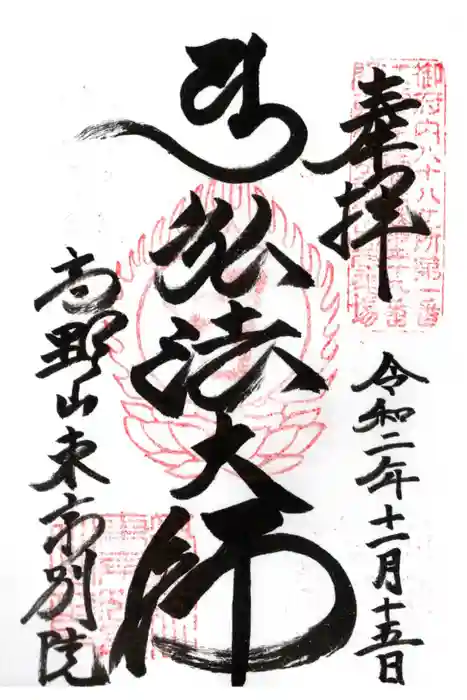 奉拝
令和二年十一月十五日
弘法大師
高野山東京別院
御府内八十八ヶ所第一番